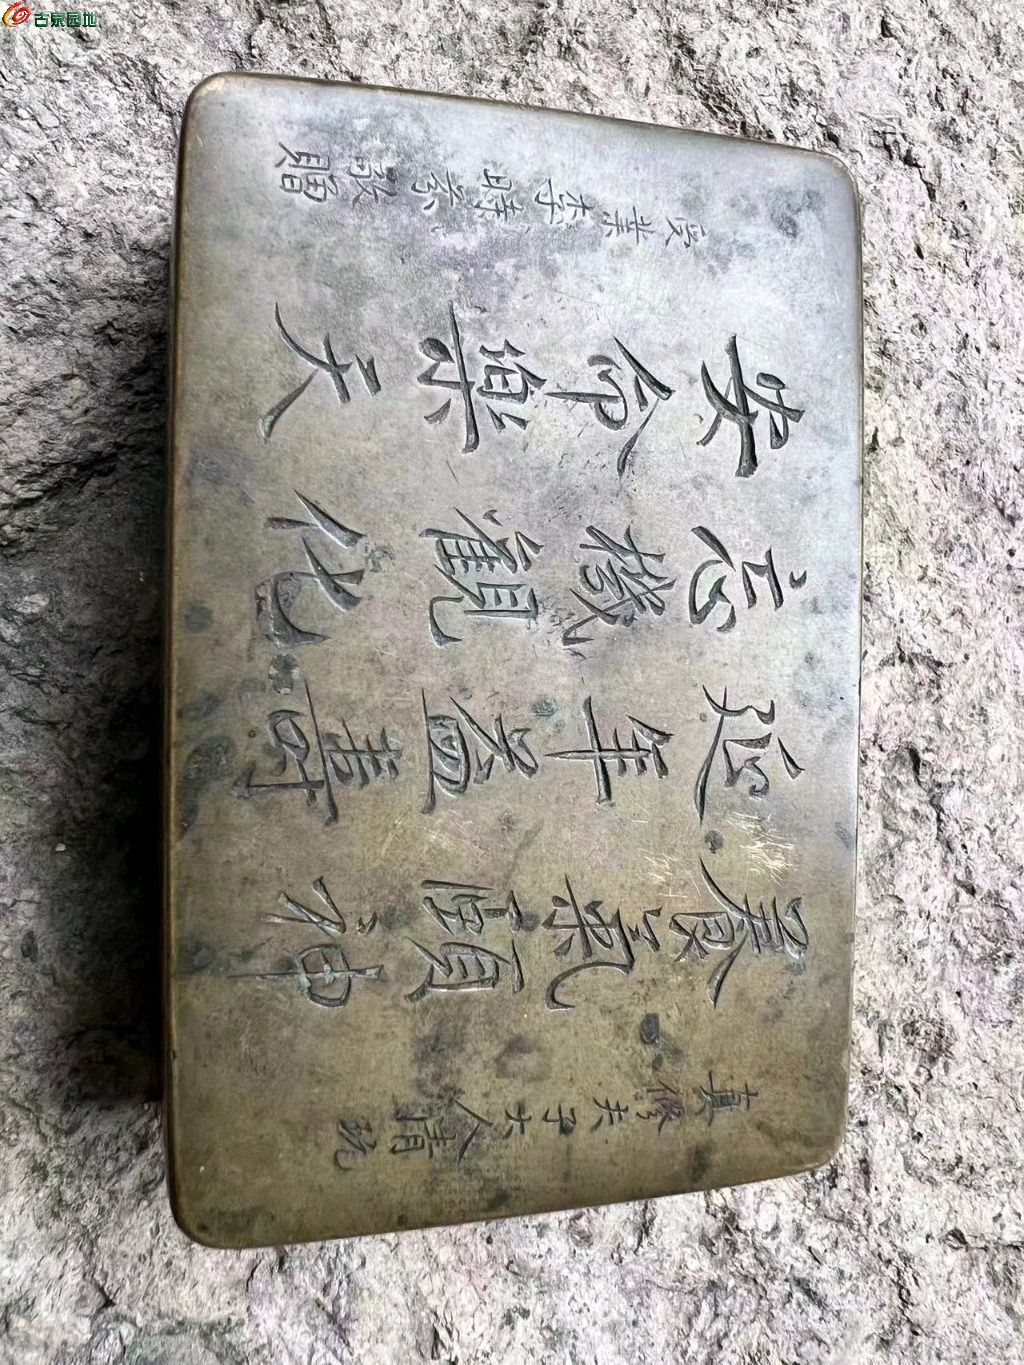 古泉园地
真修夫子大人清玩
養氣頤神
延年益壽
忘機觀化
安命樂天
受業李時敬贈